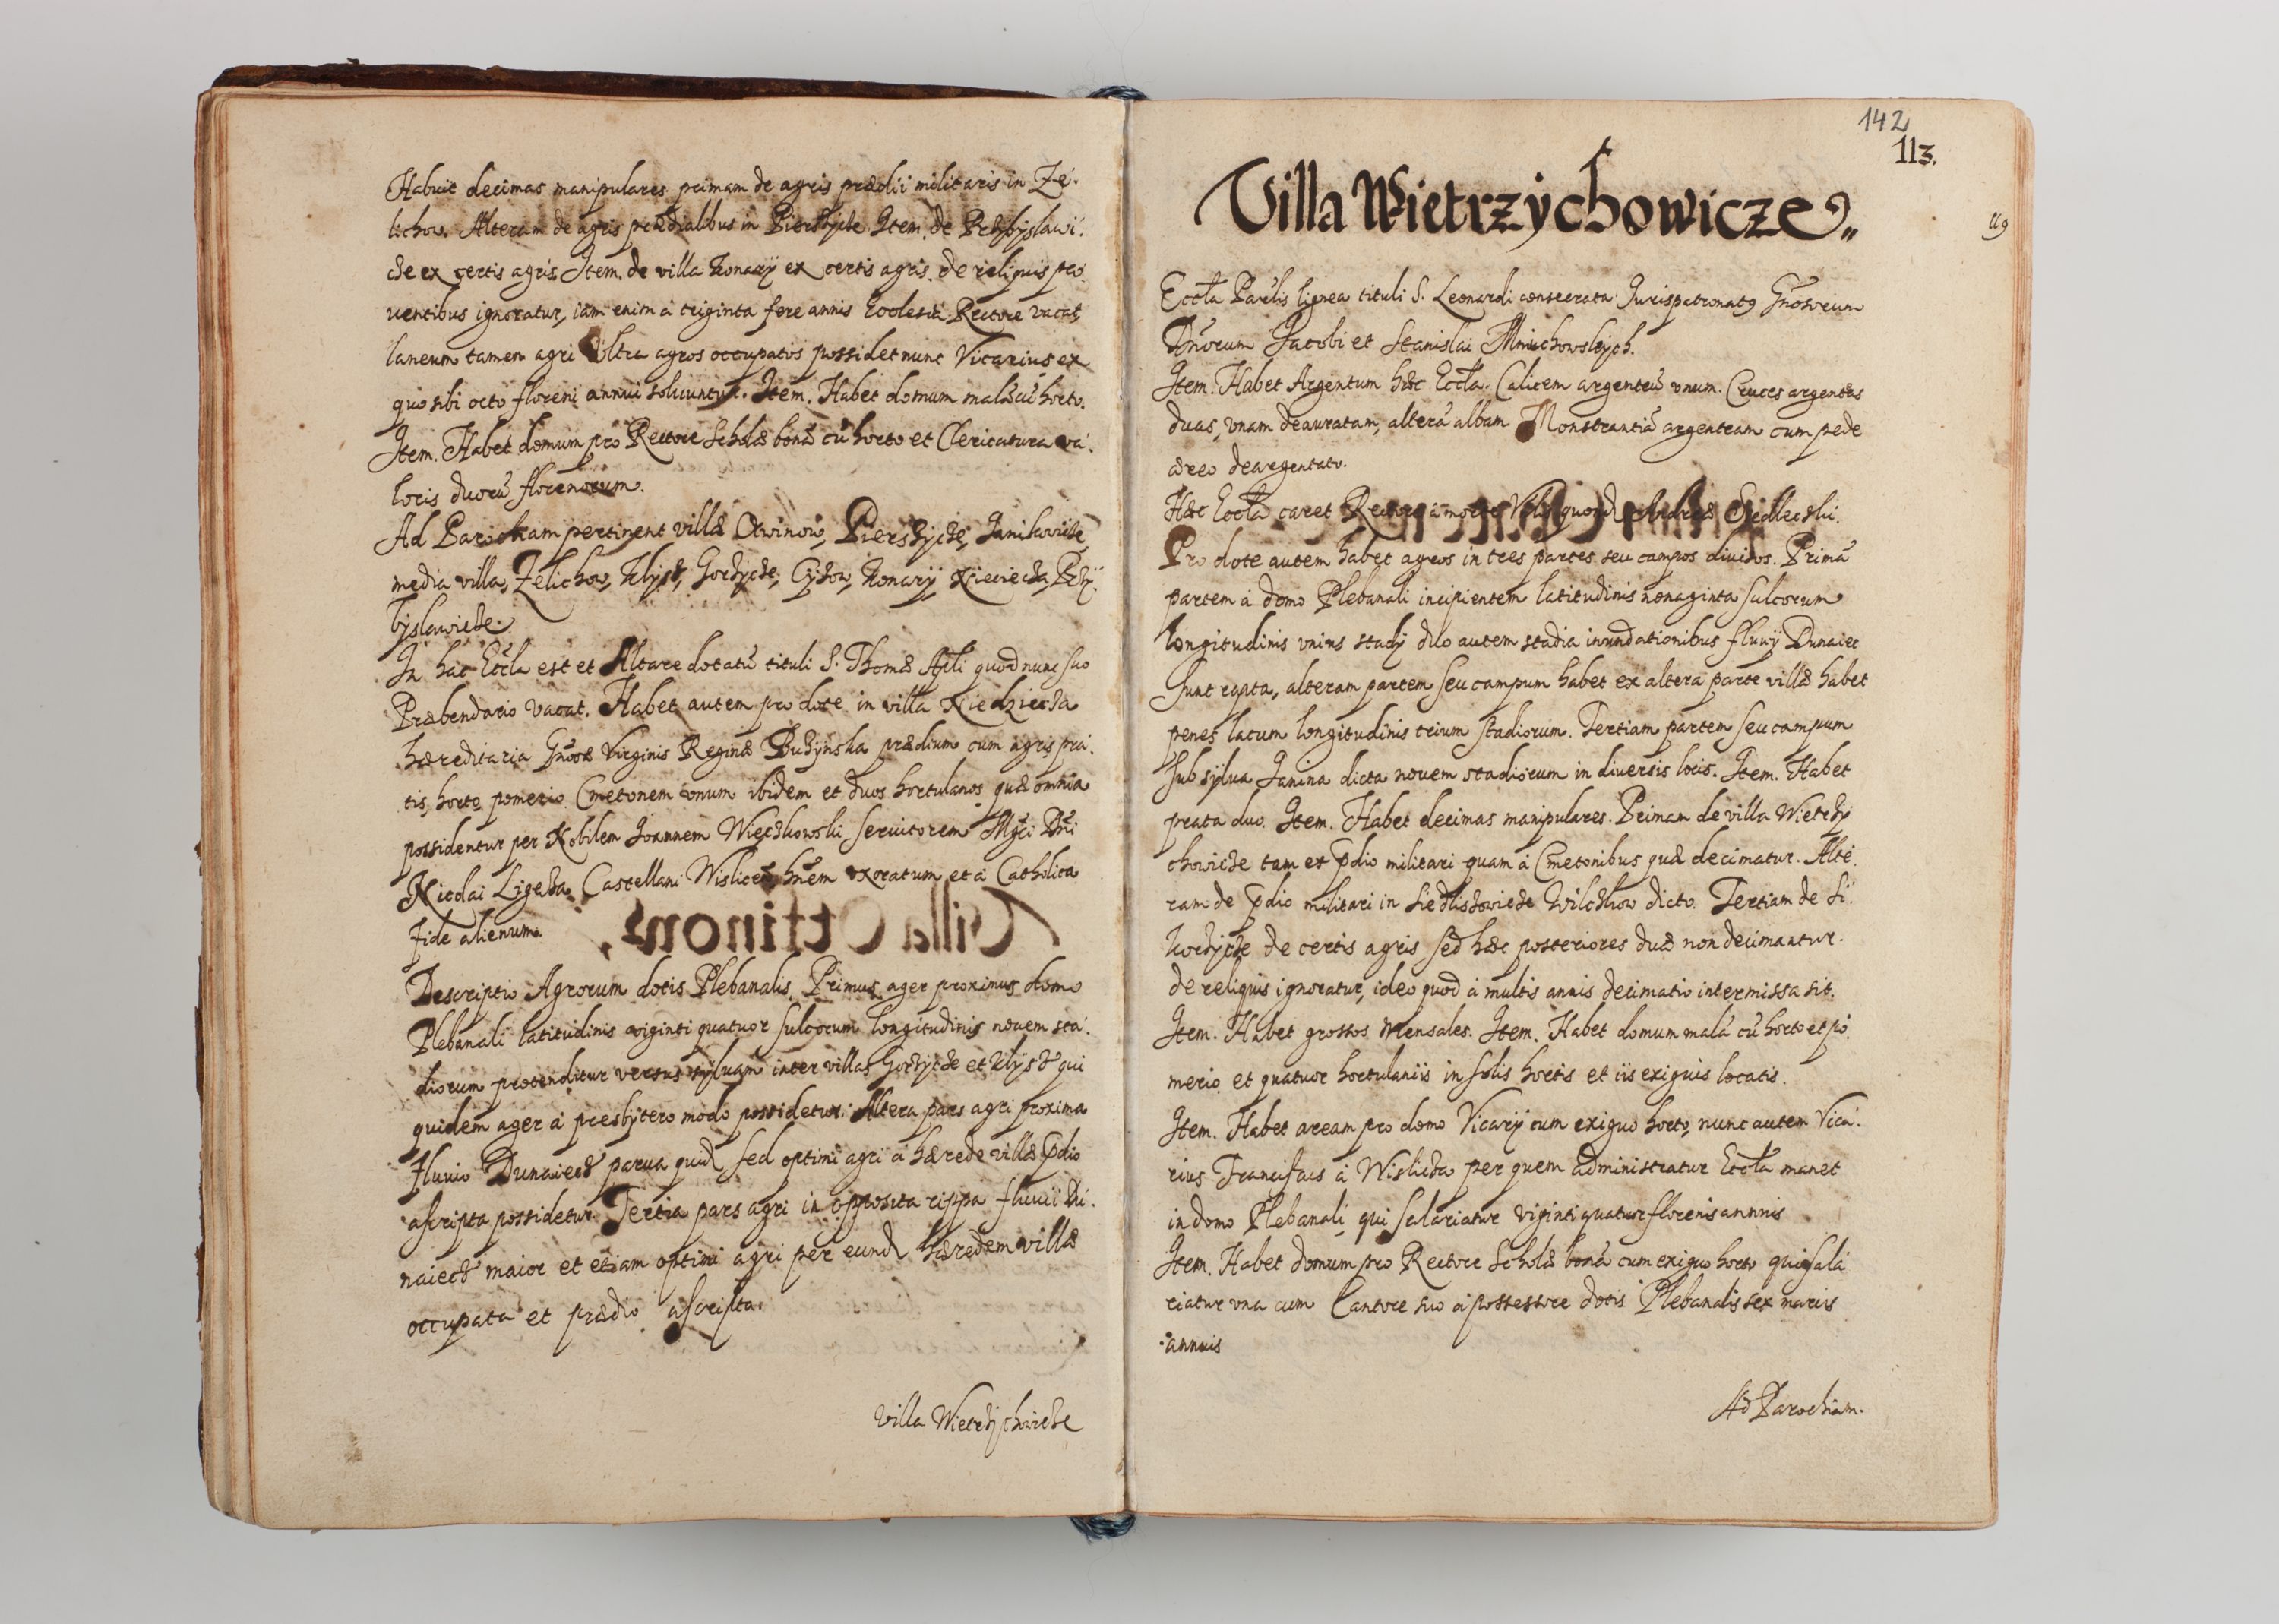 Habuit decimas manipulares primam de agris prædii militaris in Ze-
lichow. Alteram de agris prædialibus in Pierszycze Item. de Przybyslawi-
cze ex certis agris Item. de villa Konary ex certis agris. de reliquis pro-
uentibus ignoratur, iam enim à triginta fere annis Ecclesia Rectore vacat,
laneum tamen agri Vltra agros occupatos possidet nunc Vicarius ex
quo sibi octo floreni annui soluuntur. Item. Habet domum malã cũ horto.
Item. Habet domum pro Rectore Scholæ bonã cũ horto et Clericatura va-
loris duorũ florenorum.
Ad Parochiam pertinent villæ Otwinow, Pierszycze, Janikowicze,
media villa, Zelichow, Klysz, Gorzycze, Cyzow, Konary, Nieciecza, Przy-
byslawicze.
In hac Eccla est et Altare dotatũ tituli S. Thomæ Apli quod nunc suo
Præbendario vacat. Habet autem pro dote in villa Niedziecza
hæreditaria Gnosæ Virginis Reginæ Buzynska prædium cum agris pra-
tis, horto pomerio Cmetonem vnum ibidem et duos hortulanos quæ omnia
possidentur per Nobilem Joannem Wieczkowski seruitorem Mgci Dni
Nicolai Ligeza Castellani Wislicen hnem vxoratum et à Catholica
Fide alienum.
Descriptio Agrorum dotis Plebanalis. Primus ager proximus domo
Plebanali latitudinis viginti quatuor sulcorum longitudinis nouem sta-
diorum protenditur versus syluam inter villas Gorzycze et Klysz qui
quidem ager à presbytero modo possidetur. Altera pars agri proxima
Fluuio Dunaiecz parua quid sed optimi agri à hærede villæ pdio
ascripta possidetur. Tertia pars agri in opposita rippa fluuii Du-
naiecz maior et etiam optimi agri per eund hæredem villæ
occupata et prædio ascripta.
Villa Wietrzychowicze
142
113.
119
Villa Wietrzychowicze
Eccla Parlis lignea tituli S. Leonardi consecrata Jurispatronatq Gnosorum
Dnorum Jacobi et Stanislai Mniichowskych.
Item. Habet Argentum hæc Eccla. Calicem argenteũ vnum. Cruces argenteas
duas, vnam deauratam, alterã albam Monstrantiã argenteam cum pede
æreo deargentato.
Hæc Eccla caret Rectore à morte Vlis quond Andreæ Siedleczki.
Pro dote autem habet agros in tres partes seu campos diuisos. Primã
partem à domo Plebanali incipientem latitudinis nonaginta sulcorum
longitudinis vnius stady duo autem stadia inundationibus fluuij Dunaiec
sunt rapta, alteram partem seu campum habet ex altera parte villæ habet
penes lacum longitudinis trium stadiorum. Tertiam partem seu campum
sub sylua Janina dicta nouem stadiorum in diuersis locis. Item. Habet
prata duo. Item. Habet decimas manipulares. Primam de villa Wietrzy
chowicze tam ex pdio militari quam à Cmetonibus quæ decimatur. Alte-
ram de pdio militari in Siedliszowicze Wilczkow dicto. Tertiam de Si-
korzycze de certis agris sed hæc posteriores duæ non decimantur.
de reliquis ignoratur, ideo quod à multis annis decimatio intermissa sit.
Item. Habet grossos Mensales. Item. Habet domum malã cũ horto et po-
merio et quatuor hortulaniis in solis hortis et iis exiguis locatis.
Item. Habet aream pro domo Vicarij cum exiguo horto, nunc autem Vica-
rius Franciscus à Wislicza per quem administratur Eccla manet
in domo Plebanali qui salariatur viginti quatuor florenis annuis
Item. Habet domum pro Rectore Scholæ bonã cum exiguo horto qui sala
riatur vna cum Cantore suo à possessore dotis Plebanalis sex marcis
annuis
Ad Parochiam.